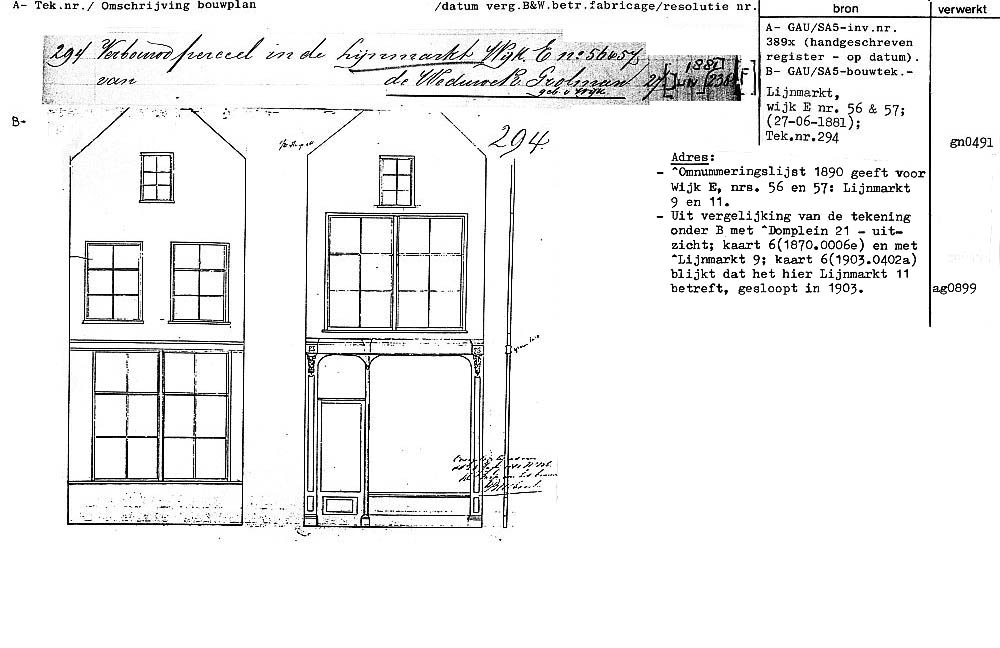 A- Tek.nr./ Omschrijving bouwplan /datum verg.B&W.betr.fabricage/resolutie nr.
bron
verwerkt
294 Verbouwd perceel in de Lijnmarkt Wijk E no 56 en 57
van de Weduwe Grolman 27 JUN 1881
A- GAU/SA5-inv.nr.
389x (handgeschreven
register - op datum).
B- GAU/SA5-bouwtek.-
Lijnmarkt,
wijk E nr. 56 & 57;
(27-06-1881);
Tek.nr.294
gn0491
B-
294.
Adres:
- ^Omnummeringslijst 1890 geeft voor
Wijk E, nrs. 56 en 57: Lijnmarkt
9 en 11.
- Uit vergelijking van de tekening
onder B met ^Domplein 21 - uit-
zicht; kaart 6(1870.0006e) en met
^Lijnmarkt 9; kaart 6(1903.0402a)
blijkt dat het hier Lijnmarkt 11
betreft, gesloopt in 1903.
ag0899